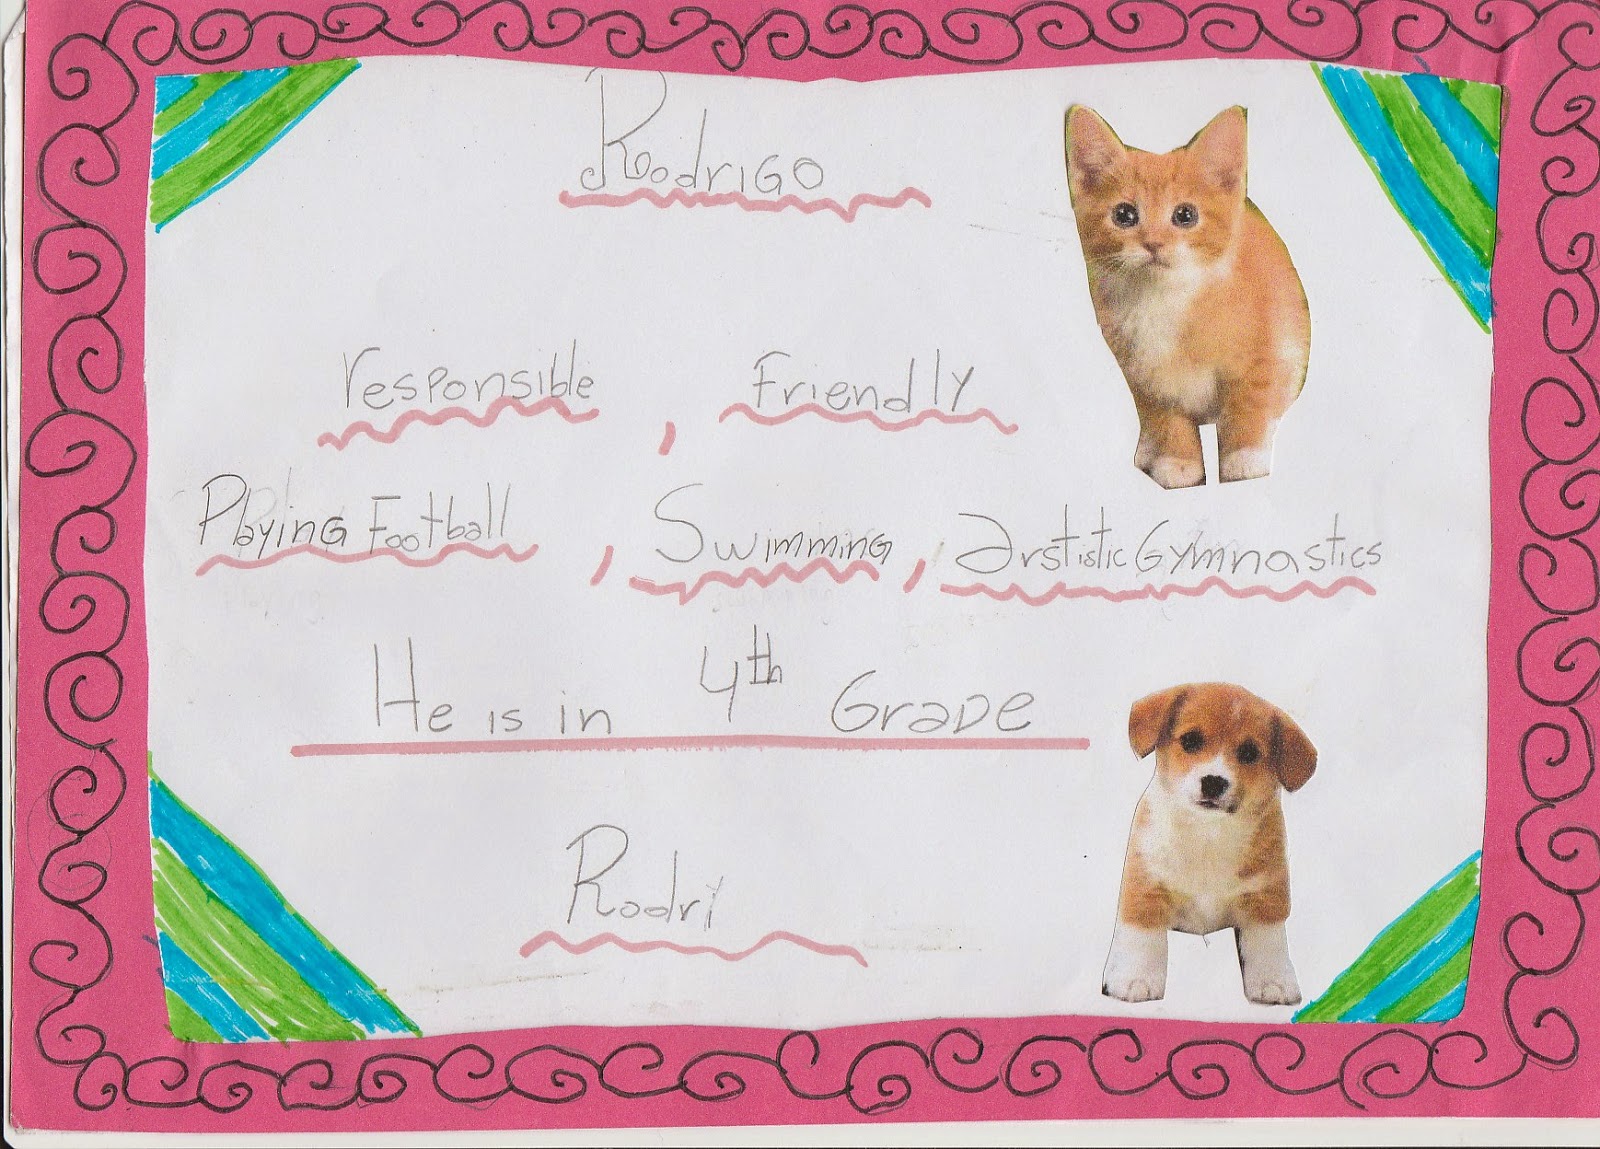 Rodrigo
responsible , Friendly
Playing Football , Swimming , Arstistic Gymnastics
He is in 4th Grade
Rodry